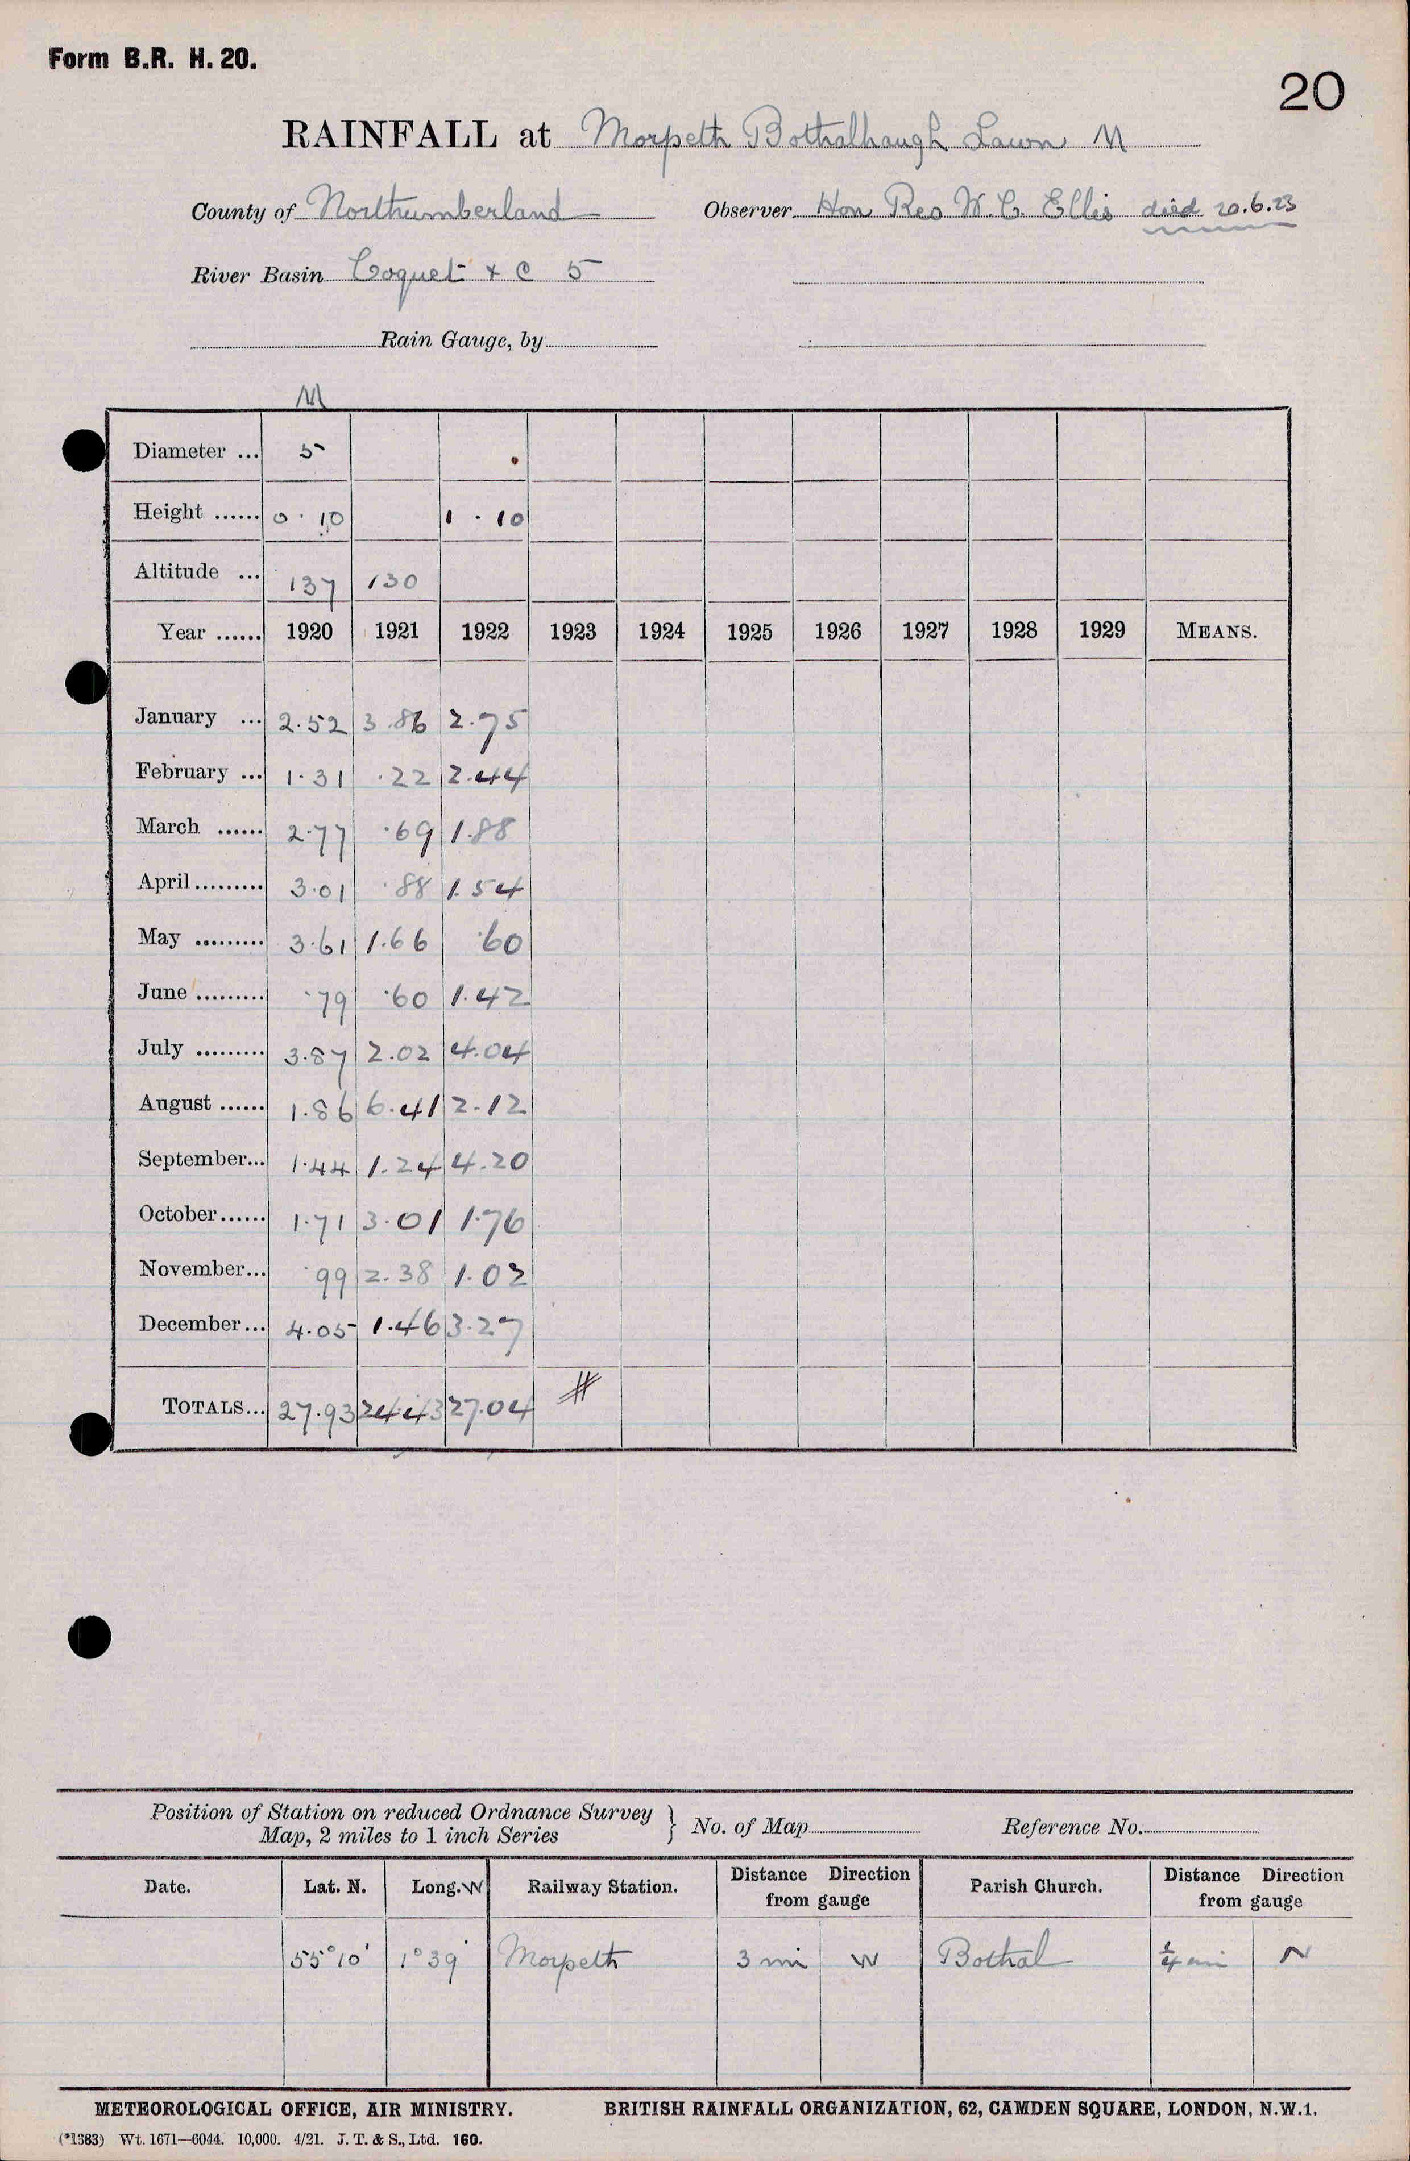 Form B.R. H. 20.
20
RAINFALL at Morpeth Bothalhaugh Lawn M
County of Northumberland Observer Hon Rev W. C. Ellis died 20.6.23
River Basin Coquet & C 5
Rain Gauge, by
M
Diameter ... 5
Height ...... 0 . 10 1 . 10
Altitude ... 137 130
Year ...... 1920 1921 1922 1923 1924 1925 1926 1927 1928 1929 MEANS.
January ... 2.52 3.86 2.75
February ... 1.31 .22 2.44
March ...... 2.77 .69 1.88
April......... 3.01 .88 1.54
May ......... 3.61 1.66 .60
June ......... .79 .60 1.42
July ......... 3.87 2.02 4.04
August ...... 1.86 6.41 2.12
September... 1.44 1.24 4.20
October...... 1.71 3.01 1.76
November... .99 2.38 1.02
December... 4.05 1.46 3.27
TOTALS... 27.93 24.43 27.04 #
Position of Station on reduced Ordnance Survey
Map, 2 miles to 1 inch Series } No. of Map Reference No.
Date. Lat. N. Long. W Railway Station. Distance Direction from gauge Parish Church. Distance Direction from gauge
55°10' 1°39' Morpeth 3 mi W Bothal ¼ mi N
METEOROLOGICAL OFFICE, AIR MINISTRY. BRITISH RAINFALL ORGANIZATION, 62, CAMDEN SQUARE, LONDON, N.W.1.
(*1383) Wt. 1671—6044. 10,000. 4/21. J. T. & S., Ltd. 160.